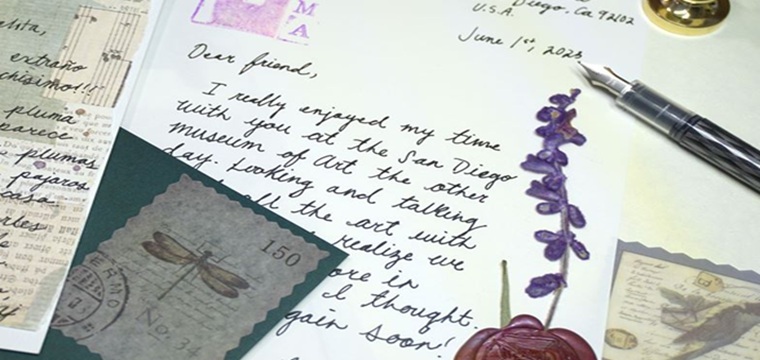 Diego, Ca 92102
U.S.A.
June 1st, 2023
M
A
Dear friend,
I really enjoyed my time
with you at the San Diego
museum of Art the other
day. Looking and talking
all the art with
realize we
ore in
I thought.
gain soon!
elita,
extraño
chísimo!!!
pluma
parece
plumas
pajaros
casa.
150
ERMO
No. 34